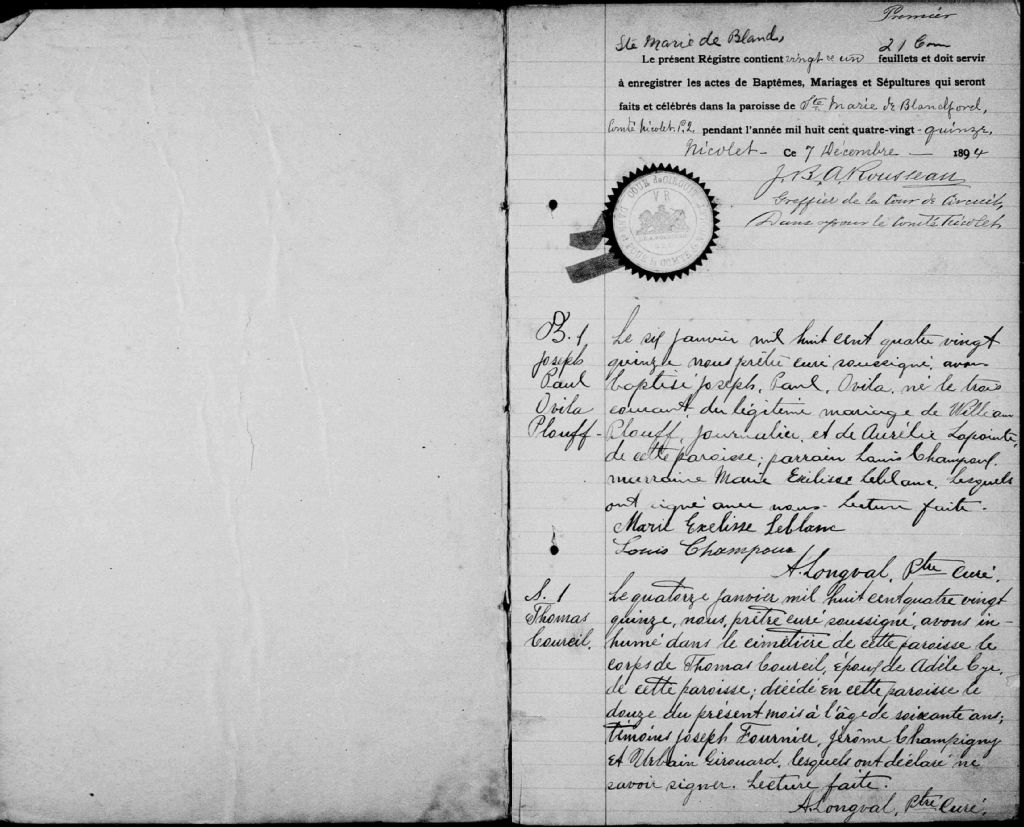 Premier
Ste Marie de Bland,
21 Com
Le présent Régistre contient vingt et un feuillets et doit servir
à enregistrer les actes de Baptêmes, Mariages et Sépultures qui seront
faits et célébrés dans la paroisse de Ste Marie de Blandford,
Comté Nicolet. P.Q. pendant l'année mil huit cent quatre-vingt-quinze,
Nicolet - Ce 7 Décembre - 1894
J. B. A. Rousseau
Greffier de la Cour de Circuit,
Dans & pour le Comté Nicolet
COUR de CIRCUIT
V R
POUR le COMTÉ
B. 1
Joseph
Paul
Ovila
Plouff -
Le six janvier mil huit cent quatre vingt
quinze nous prêtre curé soussigné, avons
baptisé Joseph, Paul, Ovila, né le trois
courant, du légitime mariage de William
Plouff, journalier, et de Aurélie Lapointe,
de cette paroisse; parrain Louis Champoux,
marraine Marie Exilisse Leblanc, lesquels
ont signé avec nous. Lecture faite.
Marie Exelisse Leblanc
Louis Champoux
A. Longval, Ptre Curé.
S. 1
Thomas
Courcil,
Le quatorze janvier mil huit cent quatre vingt
quinze, nous, prêtre curé soussigné, avons in-
humé dans le cimetière de cette paroisse le
corps de Thomas Courcil, époux de Adèle Cyr,
de cette paroisse; décédé en cette paroisse le
douze du présent mois à l'âge de soixante ans;
témoins Joseph Fournier, Jérôme Champigny
et Urbain Girouard, lesquels ont déclaré ne
savoir signer. Lecture faite.
A. Longval, Ptre Curé.